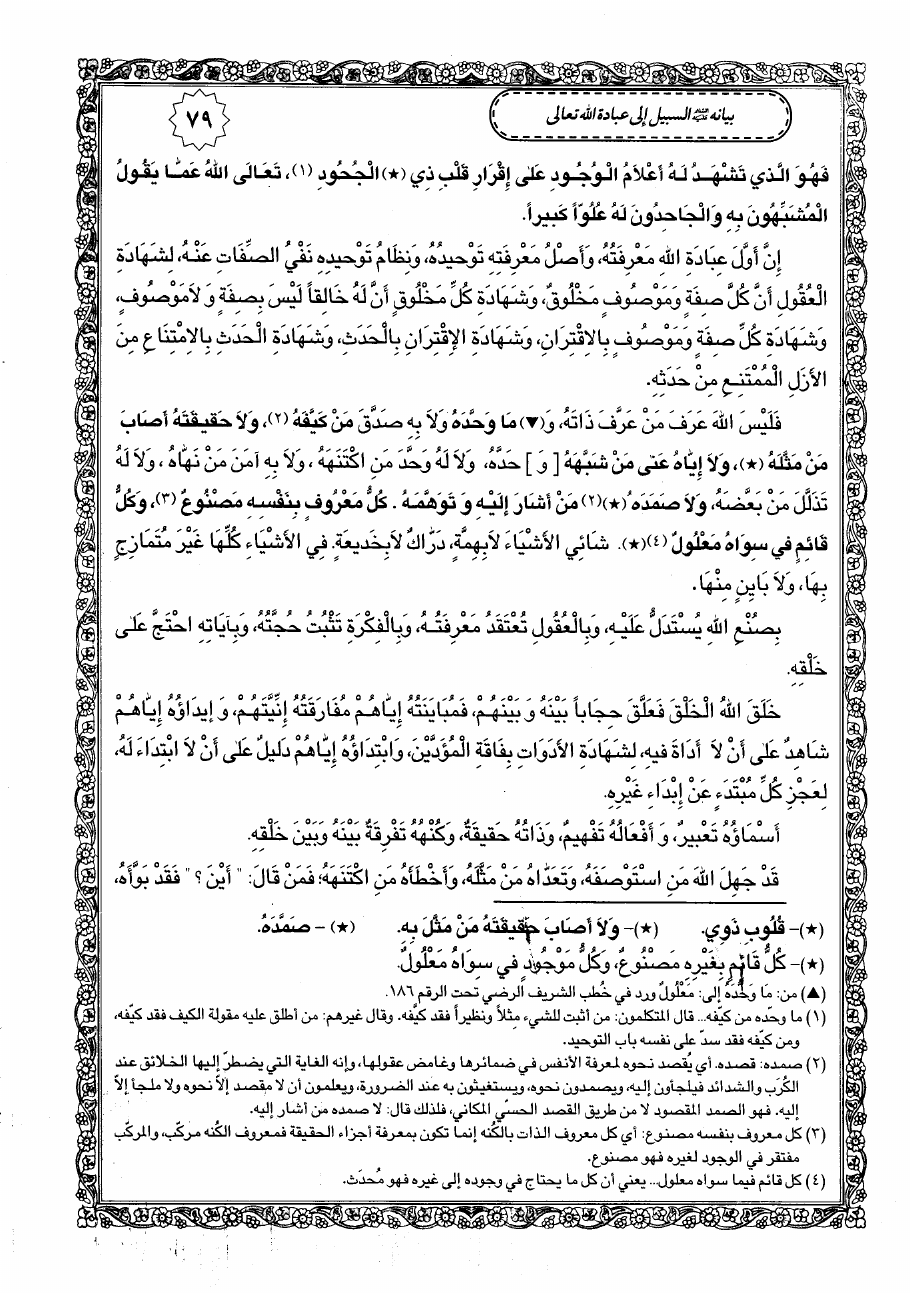 بيانه ﷺ السبيل إلى عبادة الله تعالى
٧٩
فَهُوَ الَّذي تَشْهَدُ لَهُ أَعْلاَمُ الْوُجُودِ عَلى إِقْرَارِ قَلْبِ ذِي (★) الْجُحُودِ (١)، تَعَالَى اللهُ عَمَّا يَقُولُ
الْمُشَبِّهُونَ بِهِ وَالْجَاحِدُونَ لَهُ عُلُوّاً كَبيراً.
إِنَّ أَوَّلَ عِبَادَةِ اللهِ مَعْرِفَتُهُ، وَأَصْلُ مَعْرِفَتِهِ تَوْحيدُهُ، وَنِظَامُ تَوْحيدِهِ نَفْيُ الصِّفَاتِ عَنْهُ، لِشَهَادَةِ
الْعُقُولِ أَنَّ كُلَّ صِفَةٍ وَمَوْصُوفٍ مَخْلُوقٌ، وَشَهَادَةِ كُلِّ مَخْلُوقٍ أَنَّ لَهُ خَالِقاً لَيْسَ بِصِفَةٍ وَلاَمَوْصُوفٍ،
وَشَهَادَةِ كُلِّ صِفَةٍ وَمَوْصُوفٍ بِالاِقْتِرَانِ، وَشَهَادَةِ الإِقْتِرَانِ بِالْحَدَثِ، وَشَهَادَةِ الْحَدَثِ بِالاِمْتِنَاعِ مِنَ
الأَزَلِ الْمُمْتَنِعِ مِنْ حَدَثِهِ.
فَلَيْسَ اللهَ عَرَفَ مَنْ عَرَّفَ ذَاتَهُ، وَ(▼) مَا وَحَّدَهُ وَلاَ بِهِ صَدَّقَ مَنْ كَيَّفَهُ (٢)، وَلاَ حَقيقَتَهُ أَصَابَ
مَنْ مَثَّلَهُ (★)، وَلاَ إِيَّاهُ عَنى مَنْ شَبَّهَهُ [ وَ ] حَدَّهُ، وَلاَ لَهُ وَحَّدَ مَنِ اكْتَنَهَهُ، وَلاَ بِهِ آمَنَ مَنْ نَهَاهُ، وَلاَ لَهُ
تَذَلَّلَ مَنْ بَعَّضَهُ، وَلاَ صَمَدَهُ (★)(٢) مَنْ أَشَارَ إِلَيْهِ وَ تَوَهَّمَهُ. كُلُّ مَعْرُوفٍ بِنَفْسِهِ مَصْنُوعٌ (٣)، وَكُلُّ
قَائِمٍ في سِوَاهُ مَعْلُولٌ (٤)(★). شَائِي الأَشْيَاءَ لاَبِهِمَّةٍ، دَرَّاكٌ لاَبِخَديعَةٍ. فِي الأَشْيَاءِ كُلِّهَا غَيْرَ مُتَمَازِجٍ
بِهَا، وَلاَ بَايِنٍ مِنْهَا.
بِصُنْعِ اللهِ يُسْتَدَلُّ عَلَيْهِ، وَبِالْعُقُولِ تُعْتَقَدُ مَعْرِفَتُهُ، وَبِالْفِكْرَةِ تَثْبُتُ حُجَّتُهُ، وَبِآيَاتِهِ احْتَجَّ عَلى
خَلْقِهِ.
خَلَقَ اللهُ الْخَلْقَ فَعَلَّقَ حِجَاباً بَيْنَهُ وَ بَيْنَهُمْ، فَمُبَايَنَتُهُ إِيَّاهُمْ مُفَارَقَتُهُ إِنِّيَّتَهُمْ، وَ إيدَاؤُهُ إِيَّاهُمْ
شَاهِدٌ عَلى أَنْ لاَ أَدَاةَ فيهِ، لِشَهَادَةِ الأَدَوَاتِ بِفَاقَةِ الْمُؤَدَّيْنَ، وَابْتِدَاؤُهُ إِيَّاهُمْ دَليلٌ عَلى أَنْ لاَ ابْتِدَاءَ لَهُ،
لِعَجْزِ كُلِّ مُبْتَدَءٍ عَنْ إِبْدَاءِ غَيْرِهِ.
أَسْمَاؤُهُ تَعْبيرٌ، وَ أَفْعَالُهُ تَفْهيمٌ، وَذَاتُهُ حَقيقَةٌ، وَكُنْهُهُ تَفْرِقَةٌ بَيْنَهُ وَبَيْنَ خَلْقِهِ.
قَدْ جَهِلَ اللهَ مَنِ اسْتَوْصَفَهُ، وَتَعَدَّاهُ مَنْ مَثَّلَهُ، وَأَخْطَأَهُ مَنِ اكْتَنَهَهُ؛ فَمَنْ قَالَ: " أَيْنَ ؟ " فَقَدْ بَوَّأَهُ،
(★)- قُلُوبِ ذَوِي. (★)- وَلاَ أَصَابَ حَقيقَتَهُ مَنْ مَثَّلَ بِهِ. (★)- صَمَّدَهُ.
(★)- كُلُّ قَائِمٍ بِغَيْرِهِ مَصْنُوعٌ، وَكُلُّ مَوْجُودٍ في سِوَاهُ مَعْلُولٌ.
(▲) من: مَا وَحَّدَهُ إلى: مَعْلُولٌ ورد في خُطب الشريف الرضي تحت الرقم ١٨٦.
(١) ما وحده من كيّفه... قال المتكلمون: من أثبت للشيء مِثلاً ونظيراً فقد كيّفه. وقال غيرهم: من أطلق عليه مقولة الكيف فقد كيّفه،
ومن كيّفه فقد سدّ على نفسه باب التوحيد.
(٢) صمده: قصده. أي يُقصد نحوه لمعرفة الأنفس في ضمائرها وغامض عقولها، وإنه الغاية التي يضطرّ إليها الخلائق عند
الكُرَب والشدائد فيلجأون إليه، ويصمدون نحوه، ويستغيثون به عند الضرورة، ويعلمون أن لا مقصد إلاّ نحوه ولا ملجأ إلاّ
إليه. فهو الصمد المقصود لا من طريق القصد الحسّي المكاني، فلذلك قال: لا صمده من أشار إليه.
(٣) كل معروف بنفسه مصنوع: أي كل معروف الذات بالكُنه إنما تكون بمعرفة أجزاء الحقيقة فمعروف الكُنه مركّب، والمركّب
مفتقر في الوجود لغيره فهو مصنوع.
(٤) كل قائم فيما سواه معلول... يعني أن كل ما يحتاج في وجوده إلى غيره فهو مُحدَث.